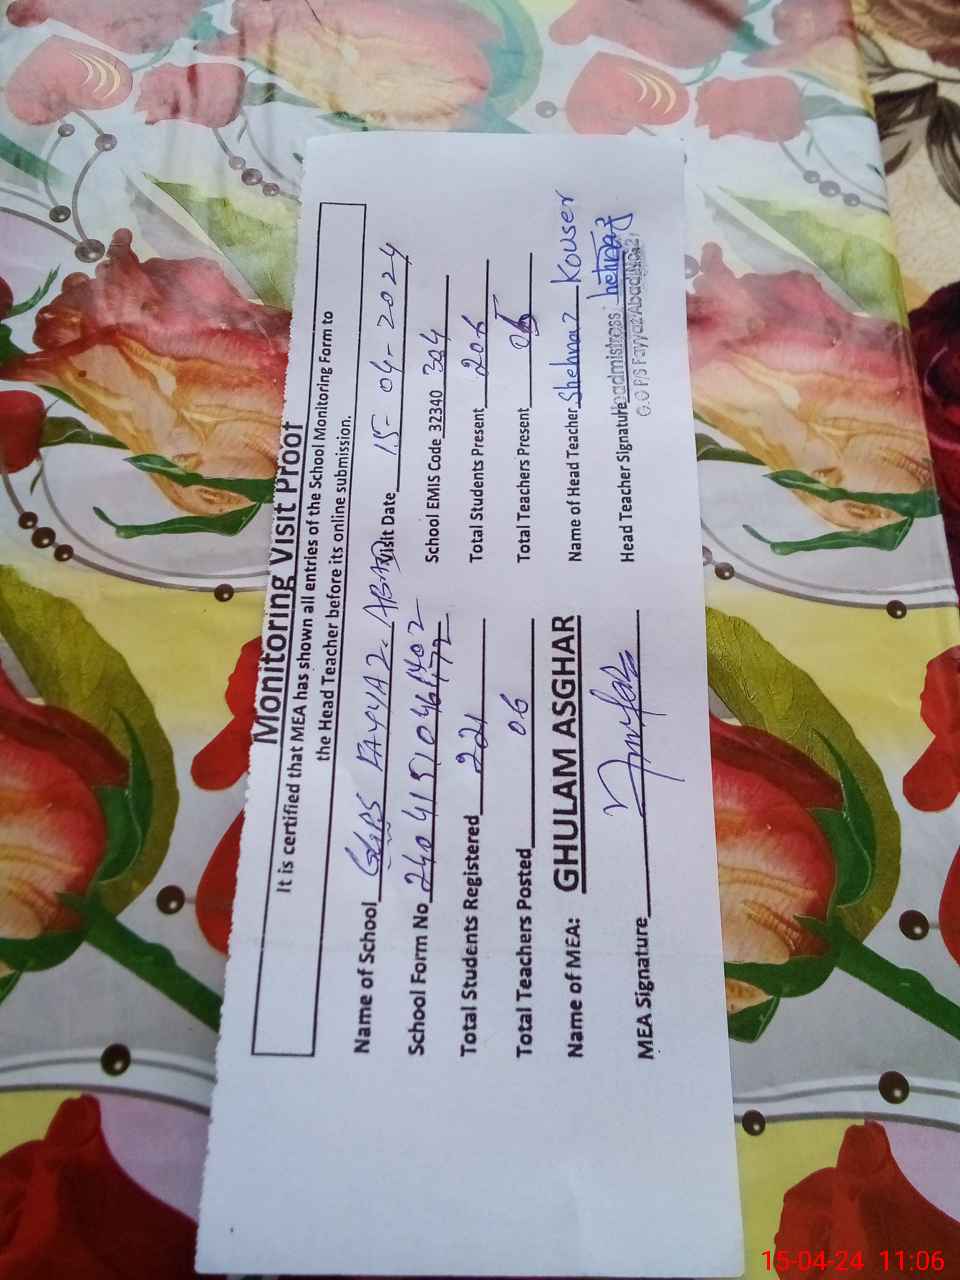 Monitoring Visit Proof
It is certified that MEA has shown all entries of the School Monitoring Form to
the Head Teacher before its online submission.
Name of School FAYYAZ ABAD Visit Date 15-04-2024
School Form No School EMIS Code 32340 304
Total Students Registered 221 Total Students Present 206
Total Teachers Posted 06 Total Teachers Present
Name of MEA: GHULAM ASGHAR Name of Head Teacher Shehnaz Kouser
MEA Signature Head Teacher Signature
Headmistress
G.G P/S Fayyaz Abad
15-04-24 11:06